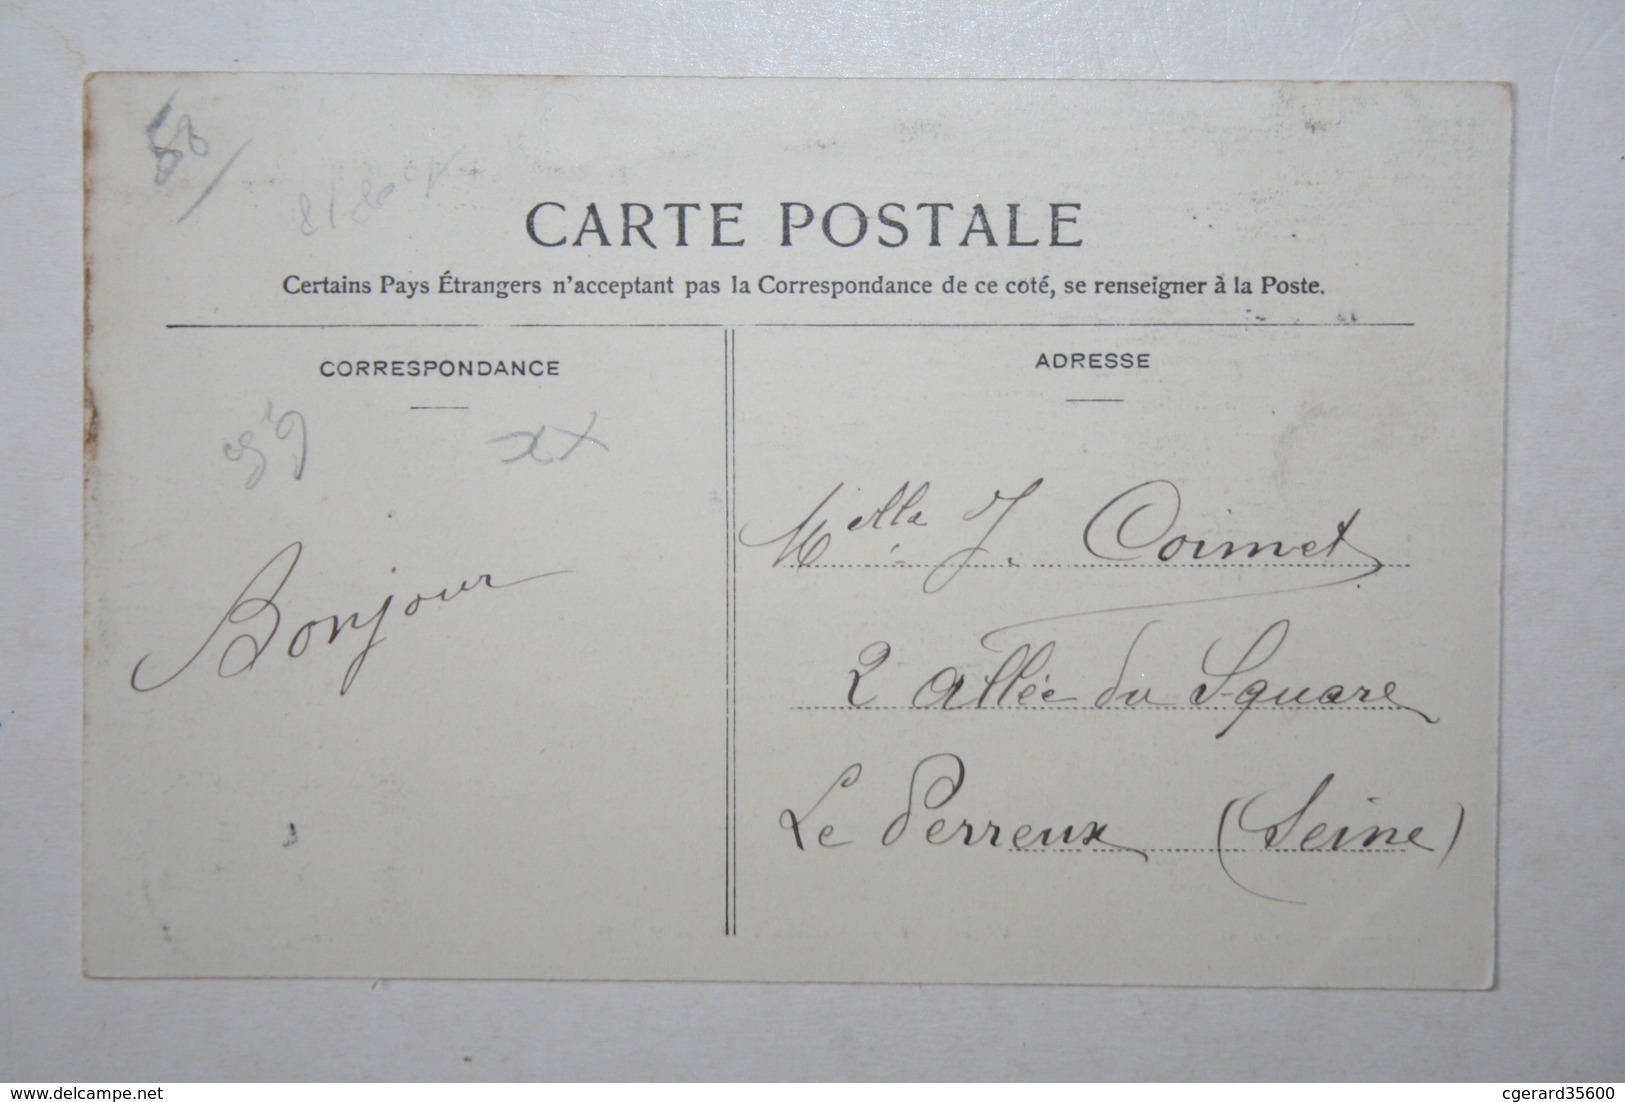 58/
CARTE POSTALE
Certains Pays Étrangers n'acceptant pas la Correspondance de ce coté, se renseigner à la Poste.
CORRESPONDANCE
ADRESSE
xx
Bonjour
Melle J. Coimet
2 allée du Square
Le Perreux (Seine)
www.delcampe.net
cgerard35600